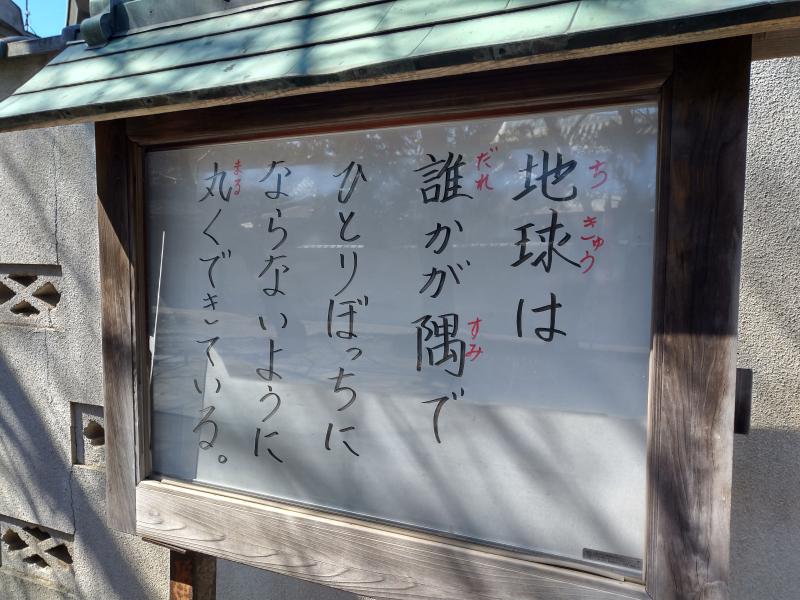 地球は
誰かが隅で
ひとりぼっちに
ならないように
丸くできている。
ちきゅう
だれ
すみ
まる